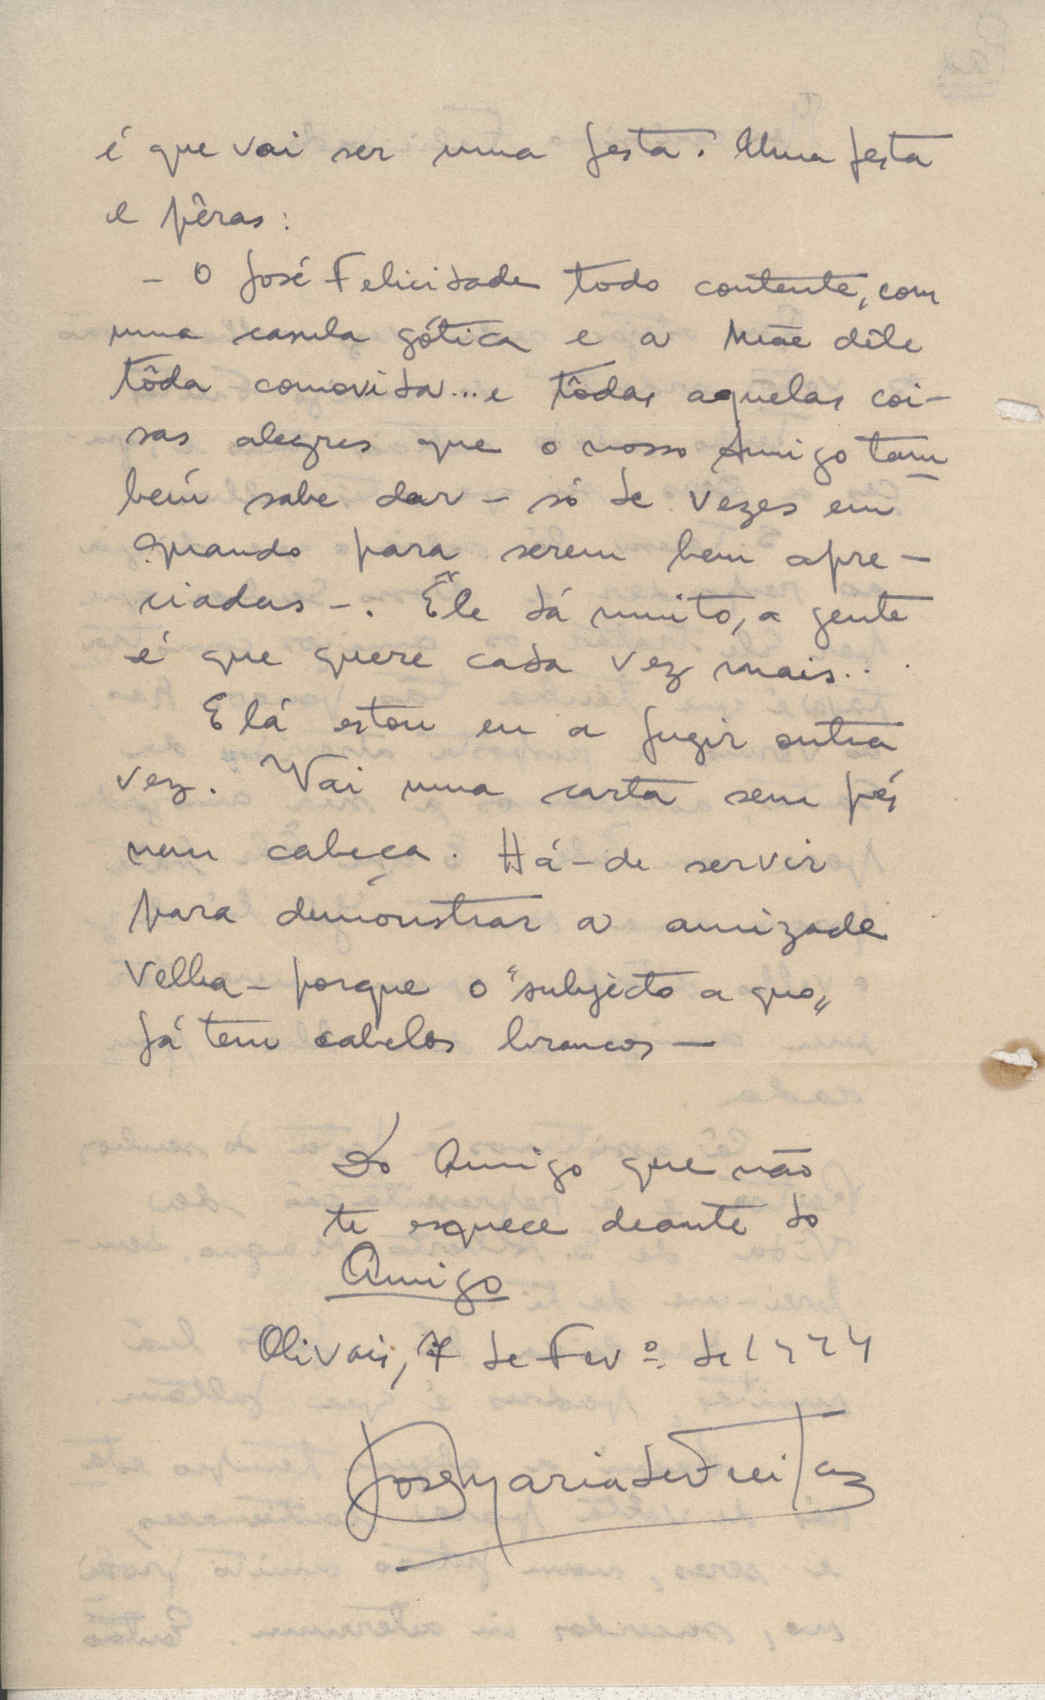 é que vai ser uma festa. Uma festa
e pêras:
- O José Felicidade todo contente, com
uma casula gótica e a Mãe dêle
tôda comovida... e tôdas aquelas coi-
sas alegres que o nosso Amigo tam
bem sabe dar - só de vezes em
quando para serem bem apre-
ciadas -. Êle dá muito, a gente
é que quere cada vez mais...
E lá estou eu a fugir outra
vez. Vai uma carta sem pés
nem cabeça. Há-de servir
para demonstrar a amizade
velha - porque o "subjecto a quo"
já tem cabelos brancos -
Do Amigo que não
te esquece deante do
Amigo
Olivais, 7 de Fevº de 1944
José Maria de Freitas